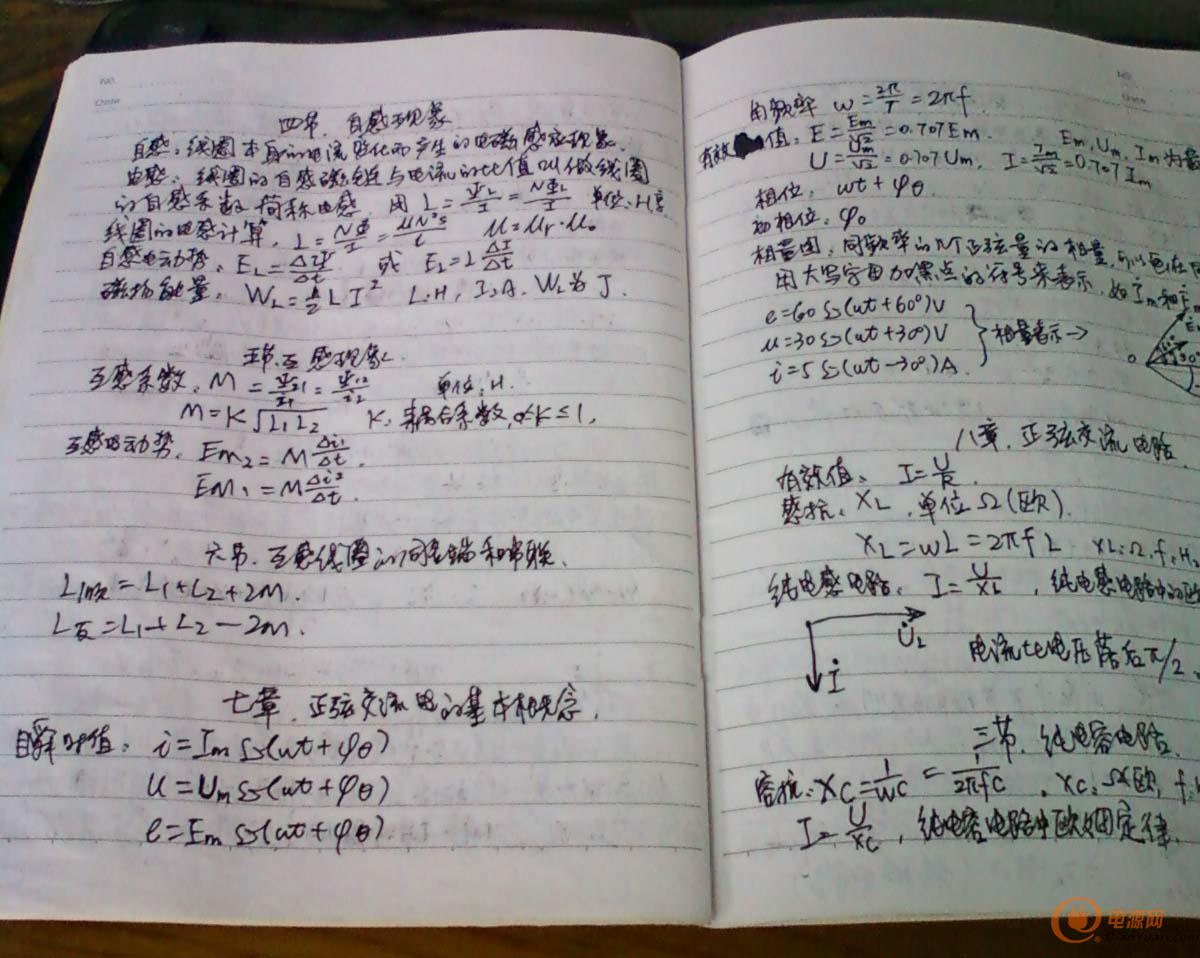 NO.
Date
四节、自感现象
自感：线圈本身的电流变化而产生的电磁感应现象.
电感：线圈的自感磁链与电流的比值叫做线圈
的自感系数简称电感 用 L=ΨL/I=NΦL/I 单位：H,亨
线圈的电感计算，L=NΦ/I=μN²S/l μ=μr·μ₀
自感电动势：EL=ΔΨ/Δt 或 EL=L ΔI/Δt
磁场能量：WL= LI² L:H, I:A. WL为J.
五节.互感现象
互感系数. M=Ψ21/I1=Ψ12/I2 单位：H.
M=K√L1L2 K：耦合系数, 0<K≤1,
互感电动势. EM2=M Δi1/Δt.
EM1=M Δi2/Δt.
六节.互感线圈的同名端和串联.
L顺=L1+L2+2M.
L反=L1+L2-2M.
七章.正弦交流电的基本概念.
瞬时值： i=Im S(ωt+φθ)
u=Um S(ωt+φθ)
e=Em S(ωt+φθ)
NO.
Date
角频率 ω=2π/T=2πf
有效值：E=Em/√2=0.707Em. Em,Um,Im为最
U=Um/√2=0.707Um, I=Im/√2=0.707Im
相位： ωt+φθ
初相位：φ₀
相量图：同频率的几个正弦量的相量，可以画在同
用大写字母加黑点的符号来表示，如İm和Ėm
e=60S(ωt+60°)V
u=30S(ωt+30°)V }相量表示→
i=5S(ωt-30°)A.
0
八章.正弦交流电路
有效值： I=U/R
感抗：XL，单位Ω(欧).
XL=ωL=2πfL XL:Ω, f:Hz
纯电感电路： I=U/XL，纯电感电路中的欧
U̇L
İ
电流比电压落后π/2.
三节.纯电容电路.
容抗：XC=1/ωC=1/2πfC. XC:Ω欧, f:
I=U/XC，纯电容电路中欧姆定律.
电源网
DianYuan.com